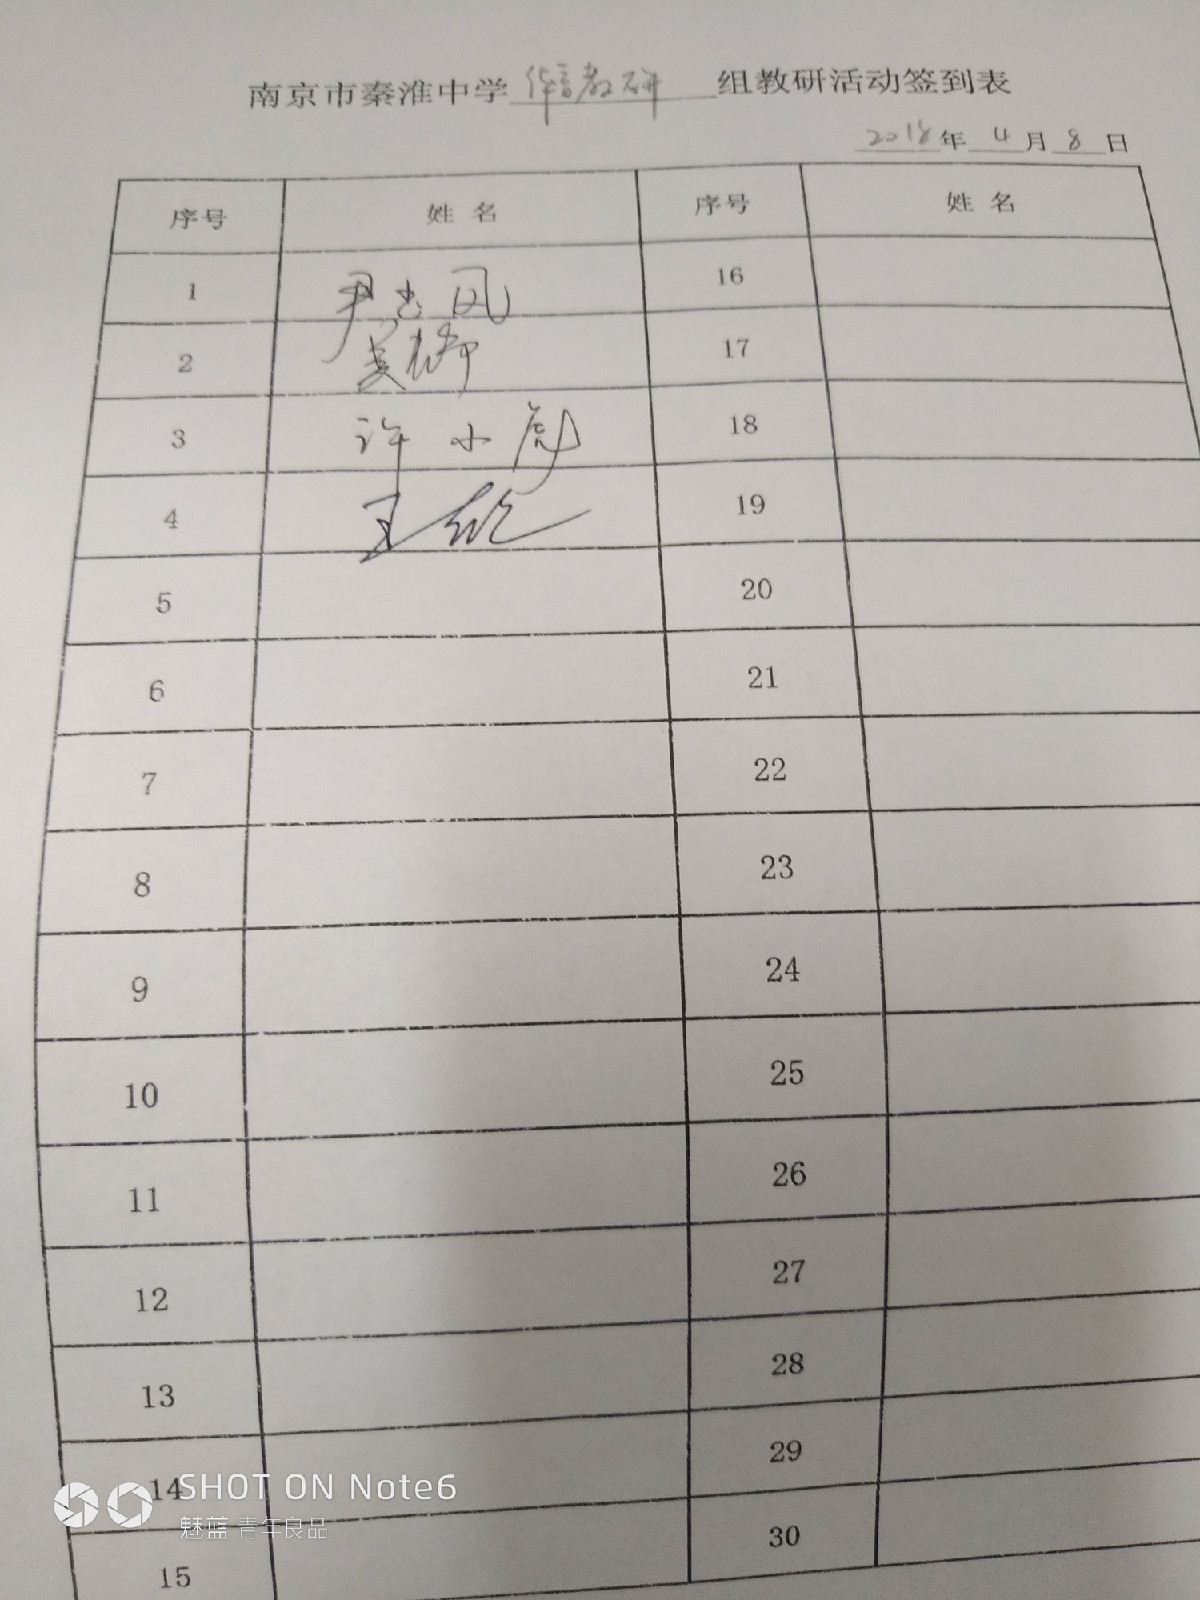 南京市秦淮中学 体音教研 组教研活动签到表
2018年 4月 8日
序号 姓名 序号 姓名
1 尹志凤 16
2 姜婷 17
3 许小彪 18
4 王欣 19
5 20
6 21
7 22
8 23
9 24
10 25
11 26
12 27
13 28
14 29
15 30
SHOT ON Note6
魅蓝 青年良品